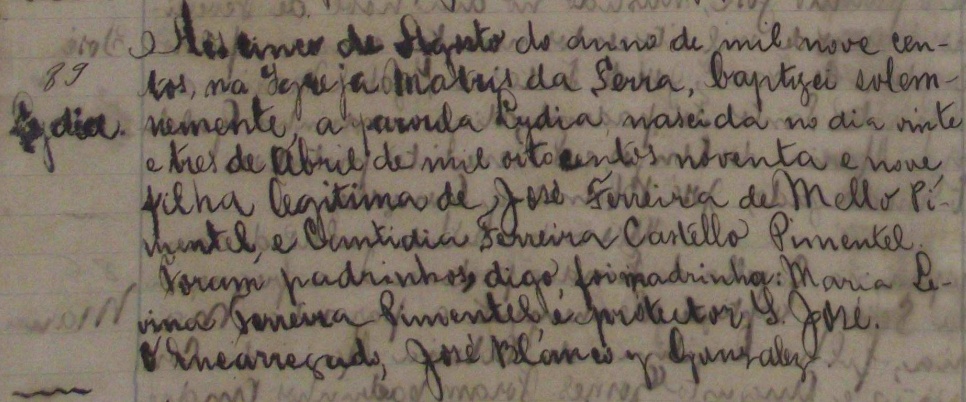 Aos cinco de Agosto do anno de mil nove cen-
tos, na Igreja Matris da Serra, baptizei solem-
89
Lydia. nemente, a parvula Lydia, nascida no dia vinte
e tres de Abril de mil oitocentos noventa e nove
filha legitima de José Ferreira de Mello Pi-
mentel, e Cantidia Ferreira Castello Pimentel.
Foram padrinhos, digo, foi madrinha: Maria Le-
vina Ferreira Pimentel e protector, S. José.
O Encarregado, José Blanco y Gonsalez